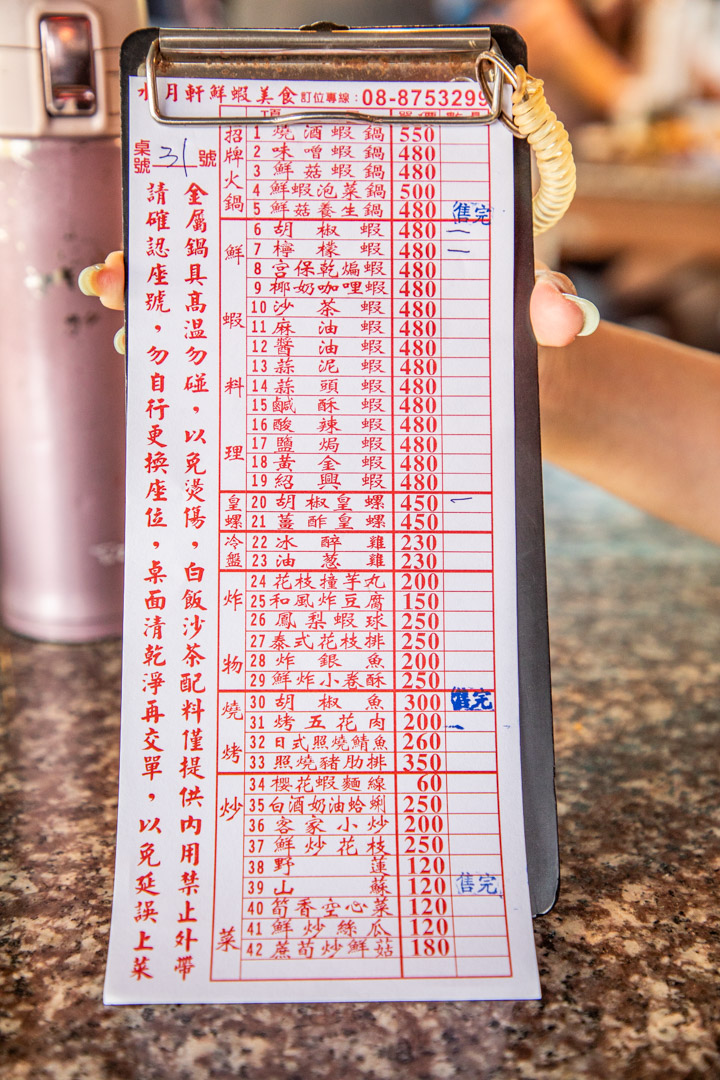 水月軒鮮蝦美食 訂位專線：08-8753299
桌號 31 號
請確認座號，勿自行更換座位，桌面清乾淨再交單，以免延誤上菜
金屬鍋具高溫勿碰，以免燙傷，白飯沙茶配料僅提供內用禁止外帶
招牌火鍋
1 燒酒蝦鍋 550
2 味噌蝦鍋 480
3 鮮菇蝦鍋 480
4 鮮蝦泡菜鍋 500
5 鮮菇養生鍋 480 售完
鮮蝦料理
6 胡椒蝦 480 一
7 檸檬蝦 480 一
8 宮保乾煸蝦 480
9 椰奶咖哩蝦 480
10 沙茶蝦 480
11 麻油蝦 480
12 醬油蝦 480
13 蒜泥蝦 480
14 蒜頭蝦 480
15 鹹酥蝦 480
16 酸辣蝦 480
17 鹽焗蝦 480
18 黃金蝦 480
19 紹興蝦 480
皇螺
20 胡椒皇螺 450 一
21 薑酢皇螺 450
冷盤
22 冰醉雞 230
23 油蔥雞 230
炸物
24 花枝撞芋丸 200
25 和風炸豆腐 150
26 鳳梨蝦球 250
27 泰式花枝排 250
28 炸銀魚 200
29 鮮炸小卷酥 250
燒烤
30 胡椒魚 300 售完
31 烤五花肉 200 一
32 日式照燒鯖魚 260
33 照燒豬肋排 350
炒菜
34 櫻花蝦麵線 60
35 白酒奶油蛤蜊 250
36 客家小炒 200
37 鮮炒花枝 250
38 野蓮 120
39 山蘇 120 售完
40 筍香空心菜 120
41 鮮炒絲瓜 120
42 蔗筍炒鮮菇 180